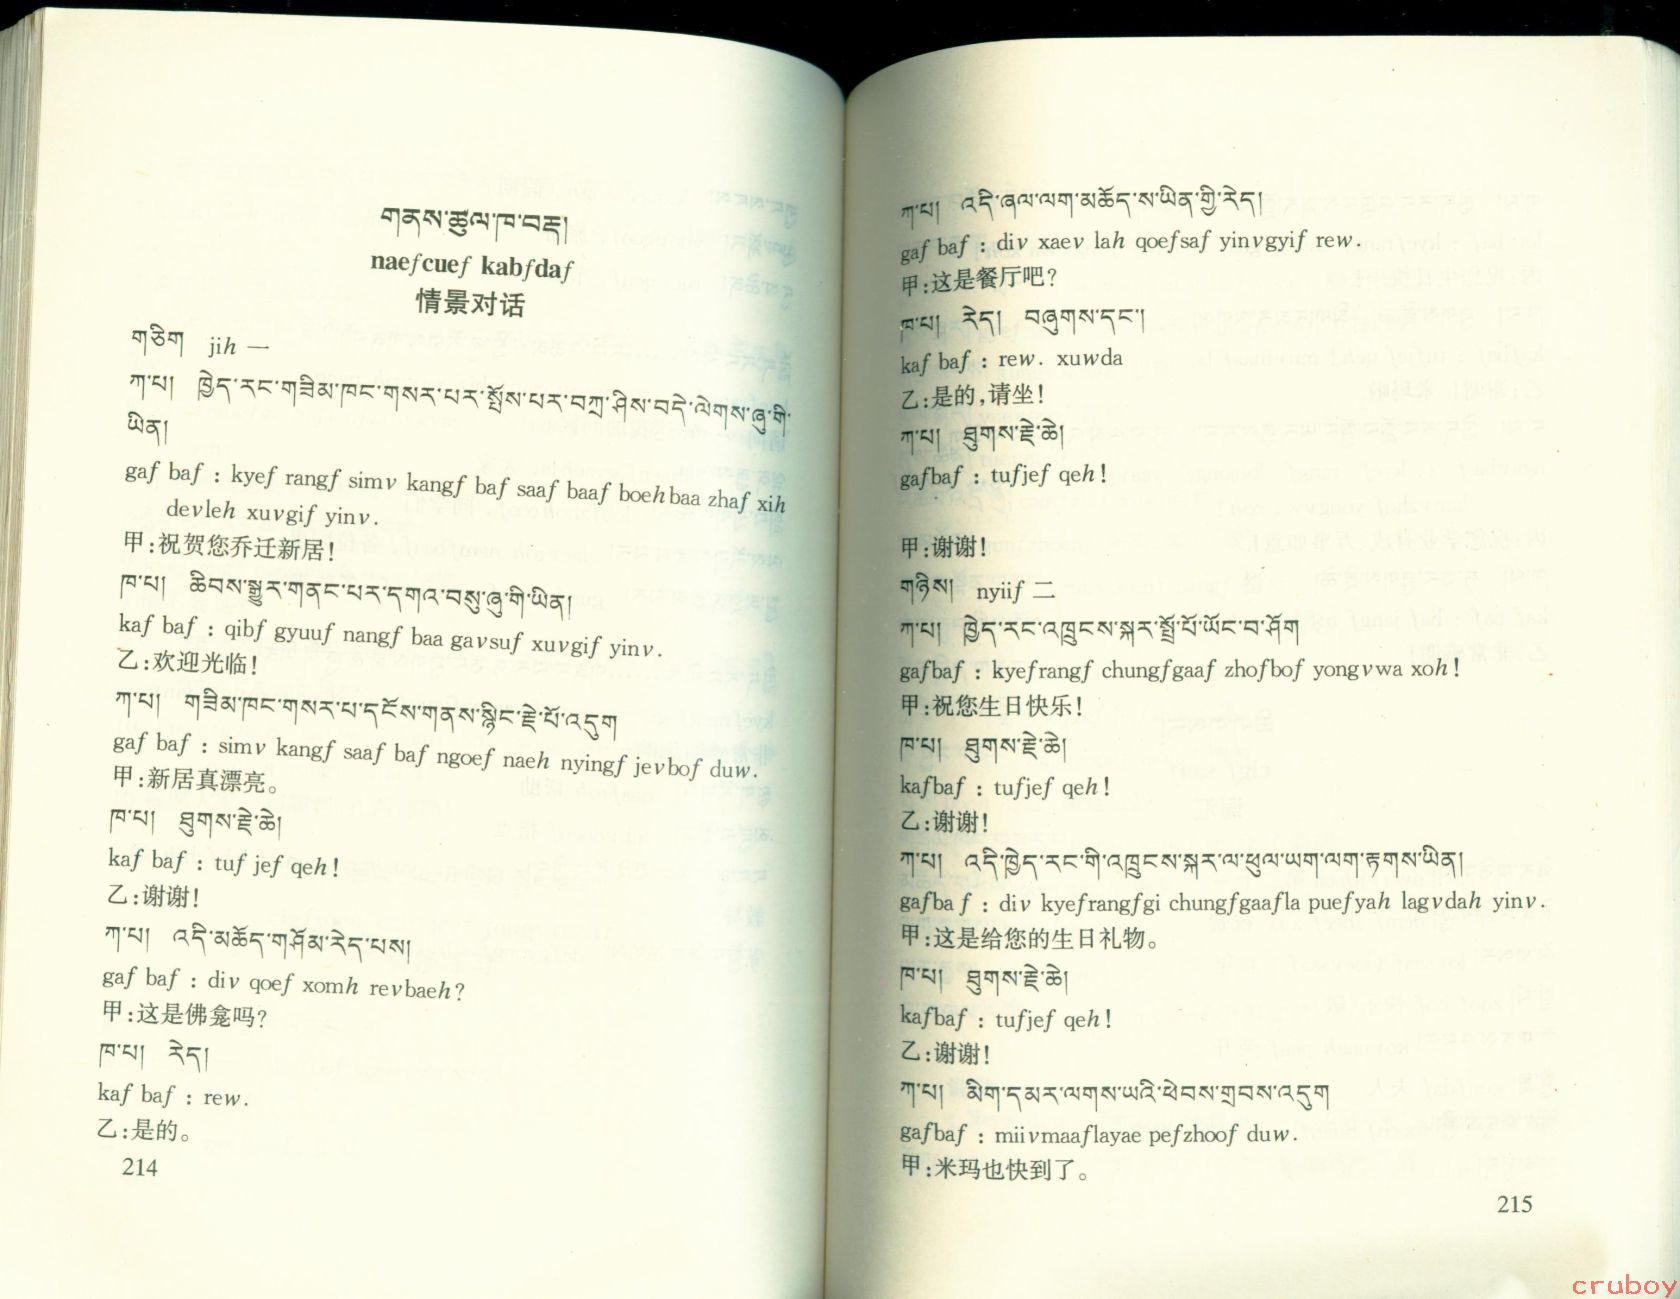 གནས་ཚུལ་ཁ་བརྡ།
naefcuef kabfdaf
情景对话
གཅིག jih 一
ཀ་པ། ཁྱེད་རང་གཟིམ་ཁང་གསར་པར་སྤོས་པར་བཀྲ་ཤིས་བདེ་ལེགས་ཞུ་གི་
ཡིན།
gaf baf : kyef rangf simv kangf baf saaf baaf boehbaa zhaf xih
devleh xuvgif yinv.
甲:祝贺您乔迁新居!
ཁ་པ། ཆིབས་སྒྱུར་གནང་པར་དགའ་བསུ་ཞུ་གི་ཡིན།
kaf baf : qibf gyuuf nangf baa gavsuf xuvgif yinv.
乙:欢迎光临!
ཀ་པ། གཟིམ་ཁང་གསར་པ་དངོས་གནས་སྙིང་རྗེ་པོ་འདུག
gaf baf : simv kangf saaf baf ngoef naeh nyingf jevbof duw.
甲:新居真漂亮。
ཁ་པ། ཐུགས་རྗེ་ཆེ།
kaf baf : tuf jef qeh!
乙:谢谢!
ཀ་པ། འདི་མཆོད་གཤོམ་རེད་པས།
gaf baf : div qoef xomh revbaeh?
甲:这是佛龛吗?
ཁ་པ། རེད།
kaf baf : rew.
乙:是的。
214
ཀ་པ། འདི་ཞལ་ལག་མཆོད་ས་ཡིན་གྱི་རེད།
gaf baf : div xaev lah qoefsaf yinvgyif rew.
甲:这是餐厅吧?
ཁ་པ། རེད། བཞུགས་དང་།
kaf baf : rew. xuwda
乙:是的,请坐!
ཀ་པ། ཐུགས་རྗེ་ཆེ།
gafbaf : tufjef qeh!
甲:谢谢!
གཉིས། nyiif 二
ཀ་པ། ཁྱེད་རང་འཁྲུངས་སྐར་སྤྲོ་པོ་ཡོང་བ་ཤོག
gafbaf : kyefrangf chungfgaaf zhofbof yongvwa xoh!
甲:祝您生日快乐!
ཁ་པ། ཐུགས་རྗེ་ཆེ།
kafbaf : tufjef qeh!
乙:谢谢!
ཀ་པ། འདི་ཁྱེད་རང་གི་འཁྲུངས་སྐར་ལ་ཕུལ་ཡག་ལག་རྟགས་ཡིན།
gafbaf : div kyefrangfgi chungfgaafla puefyah lagvdah yinv.
甲:这是给您的生日礼物。
ཁ་པ། ཐུགས་རྗེ་ཆེ།
kafbaf : tufjef qeh!
乙:谢谢!
ཀ་པ། མིག་དམར་ལགས་ཡའི་ཕེབས་གྲབས་འདུག
gafbaf : miivmaaflayae pefzhoof duw.
甲:米玛也快到了。
215
cruboy